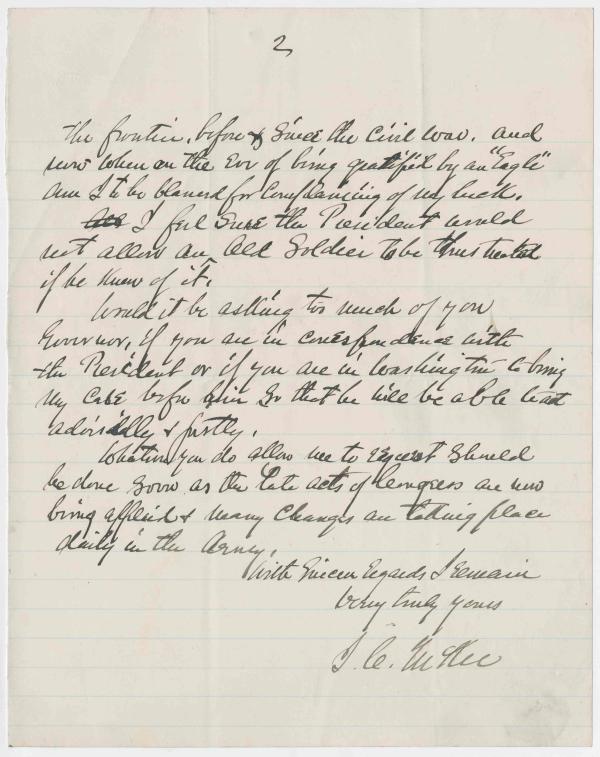 2
the frontier, before & since the Civil War. And
now when on the Eve of being gratified by an "Eagle"
am I to be blamed for complaining of my luck.
I feel sure the President would
not allow an Old Soldier to be thus treated
if he knew of it.
Would it be asking too much of you
Governor, if you are in correspondence with
the President or if you are in Washington to bring
my case before him so that he will be able to act
advisedly & justly.
Whatever you do allow me to request should
be done soon as the late acts of Congress are now
being applied & many changes are taking place
daily in the Army.
With Sincere Regards I remain
Very truly yours
J. C. McKee